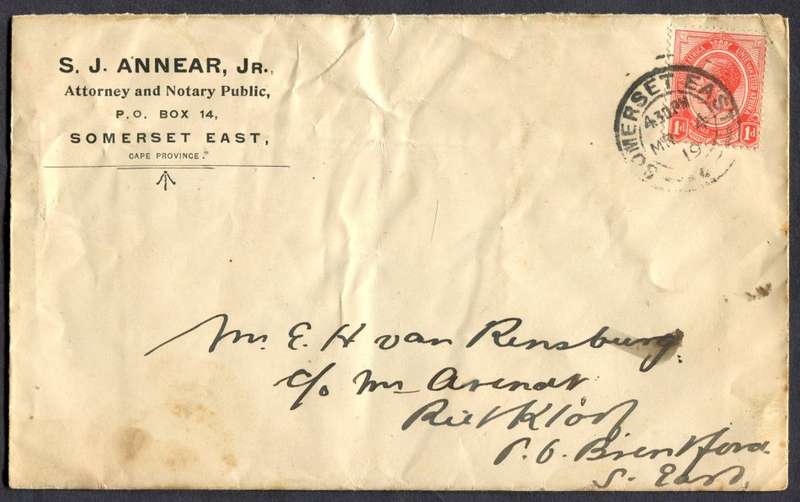 S. J. ANNEAR, JR.,
Attorney and Notary Public,
P.O. BOX 14,
SOMERSET EAST,
CAPE PROVINCE.
SOMERSET EAST
4.30 PM
MR
1d 1d
Mr. E. H van Rensburg
c/o Mr Arendt
Riet Kloof
P.O. Brentford
S. East.